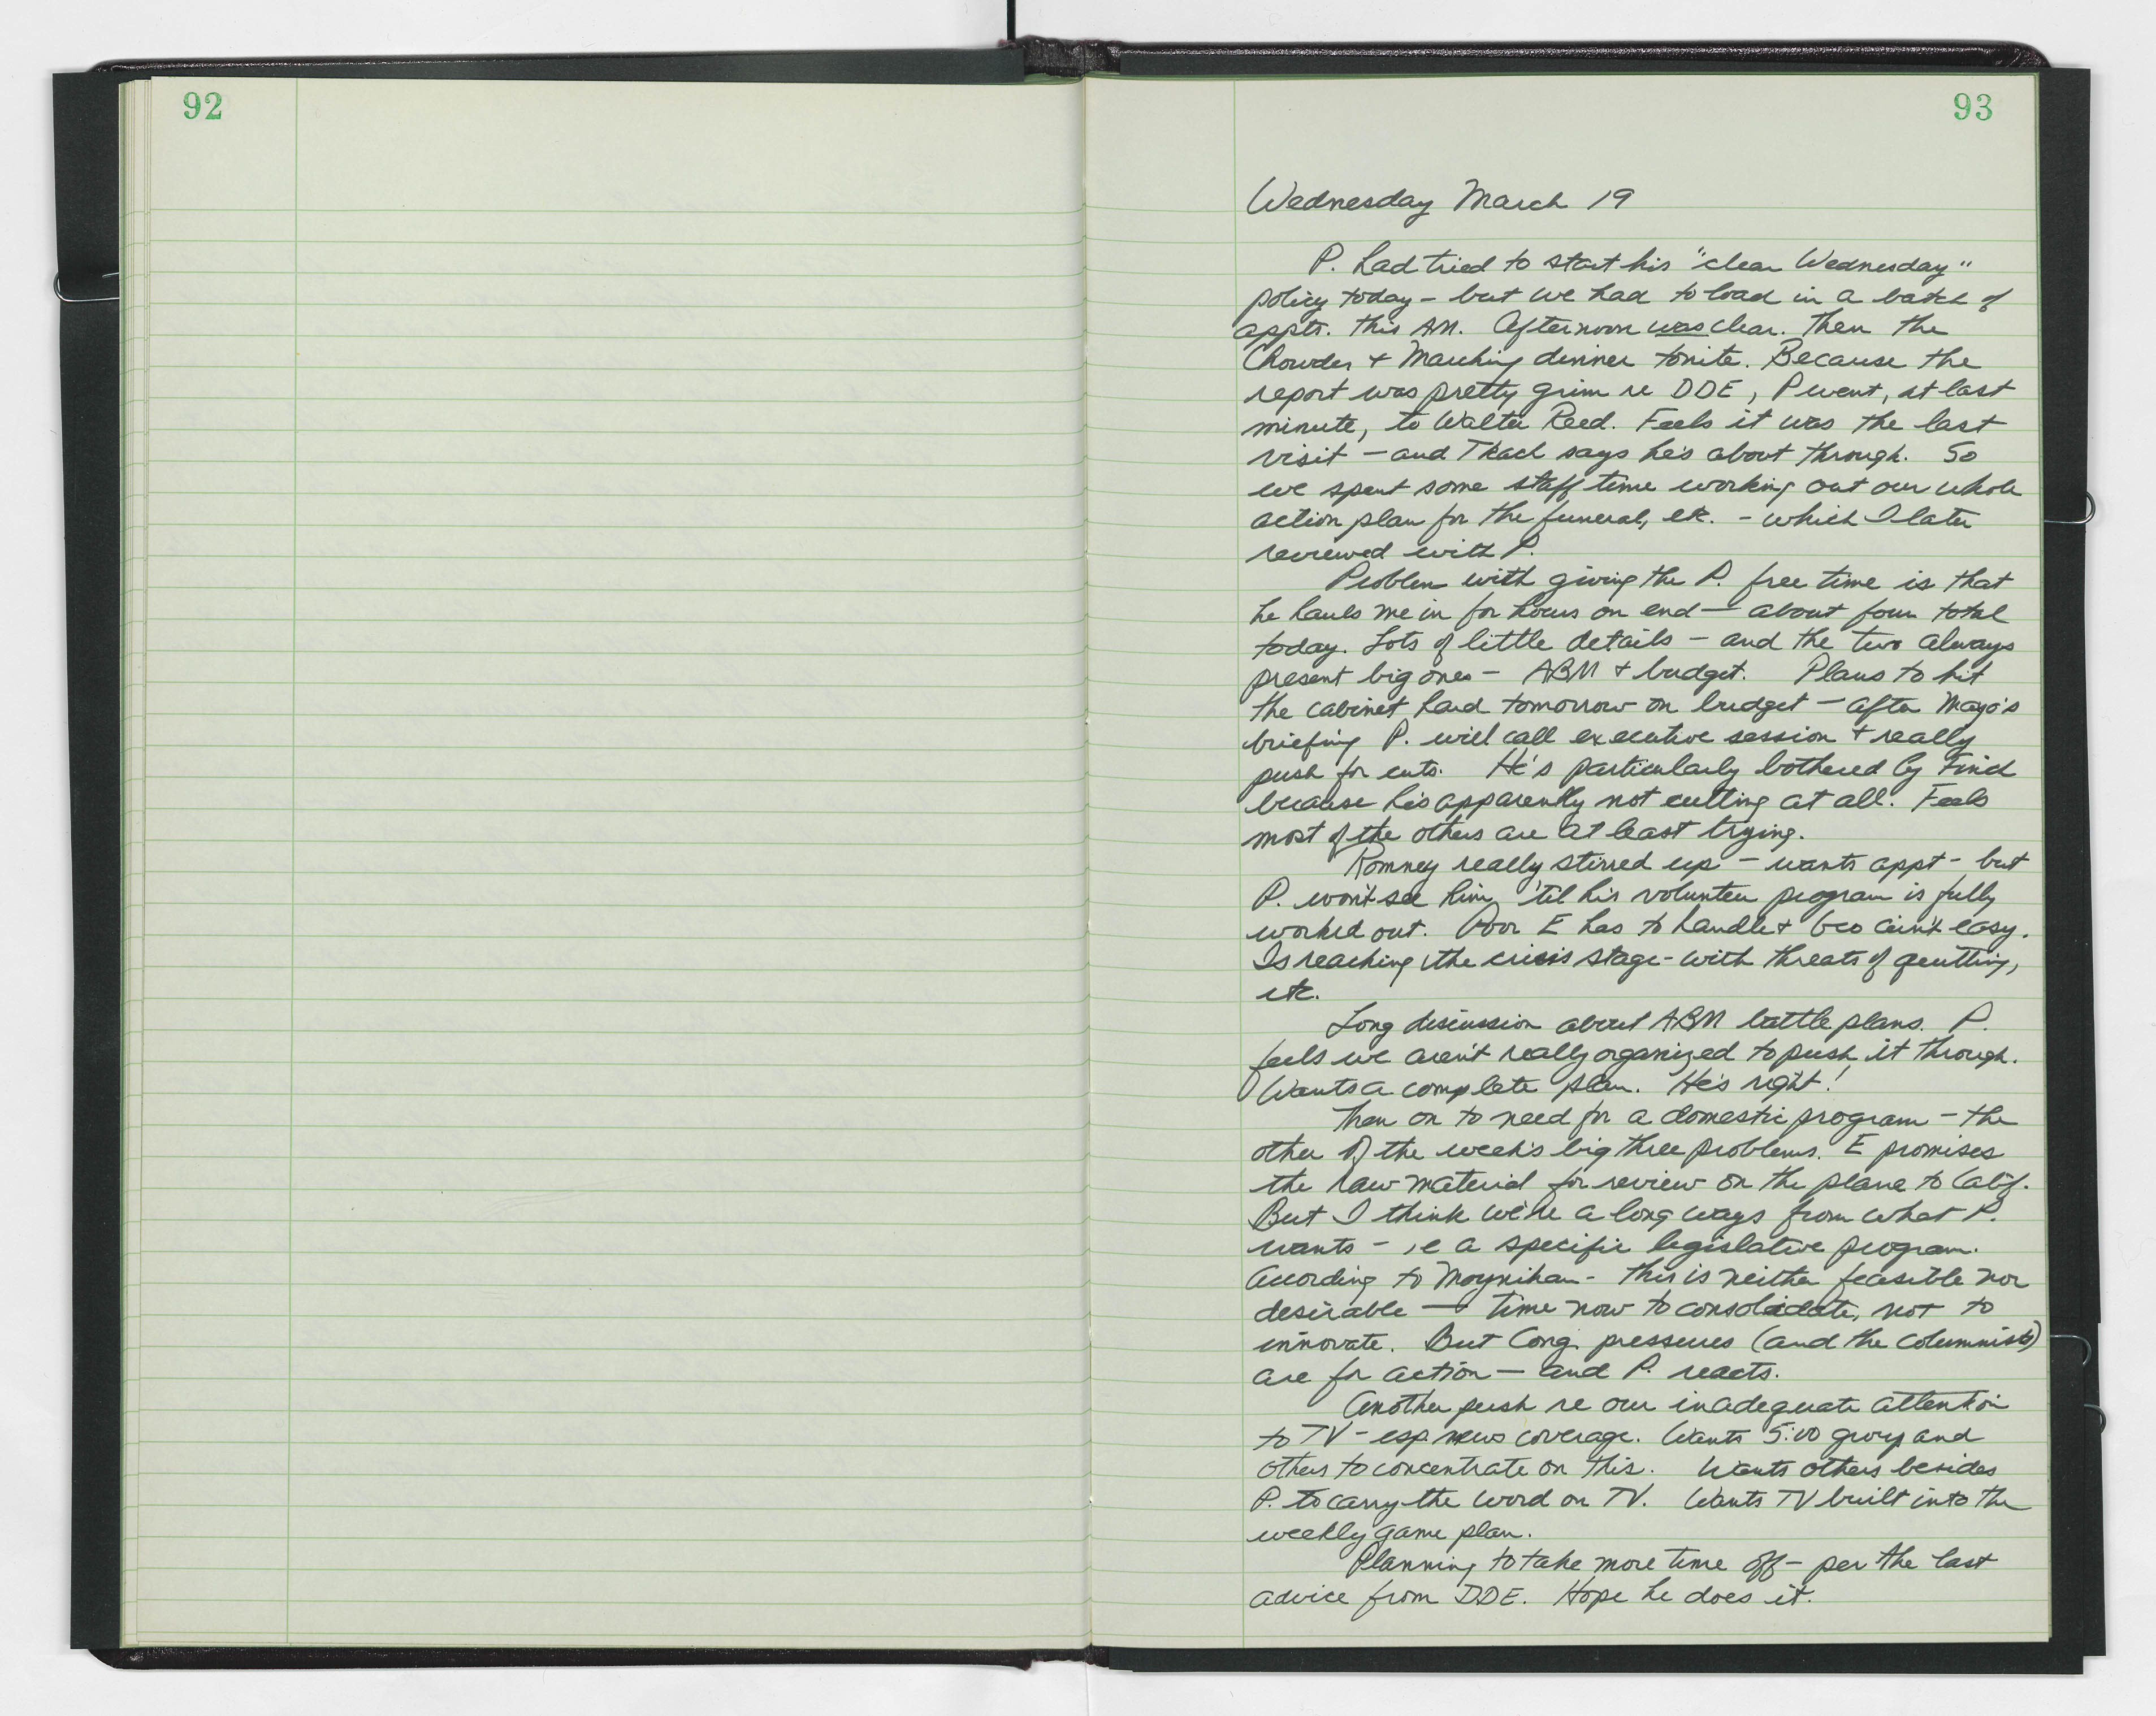 92
93
Wednesday March 19
P. had tried to start his "clear Wednesday"
policy today - but we had to load in a batch of
appts. this AM. Afternoon was clear. Then the
Chowder + Marching dinner tonite. Because the
report was pretty grim re DDE, P went, at last
minute, to Walter Reed. Feels it was the last
visit - and Tkach says he's about through. So
we spent some staff time working out our whole
action plan for the funeral, etc. - which I later
reviewed with P.
Problem with giving the P. free time is that
he hauls me in for hours on end - about four total
today. Lots of little details - and the two always
present big ones - ABM + budget. Plans to hit
the cabinet hard tomorrow on budget - after Mayo's
briefing P. will call executive session + really
push for cuts. He's particularly bothered by Finch
because he's apparently not cutting at all. Feels
most of the others are at least trying.
Romney really stirred up - wants appt - but
P. won't see him 'til his volunteer program is fully
worked out. Poor E has to handle + Geo ain't easy.
Is reaching the crisis stage - with threats of quitting,
etc.
Long discussion about ABM battle plans. P.
feels we aren't really organized to push it through.
Wants a complete plan. He's right!
Then on to need for a domestic program - the
other of the week's big three problems. E promises
the raw material for review on the plane to Calif.
But I think we're a long ways from what P.
wants - ie a specific legislative program.
According to Moynihan - this is neither feasible nor
desirable - time now to consolidate, not to
innovate. But Cong. pressures (and the columnists)
are for action - and P. reacts.
Another push re our inadequate attention
to TV - esp. news coverage. Wants 5:00 group and
others to concentrate on this. Wants others besides
P. to carry the word on TV. Wants TV built into the
weekly game plan.
Planning to take more time off - per the last
advice from DDE. Hope he does it.